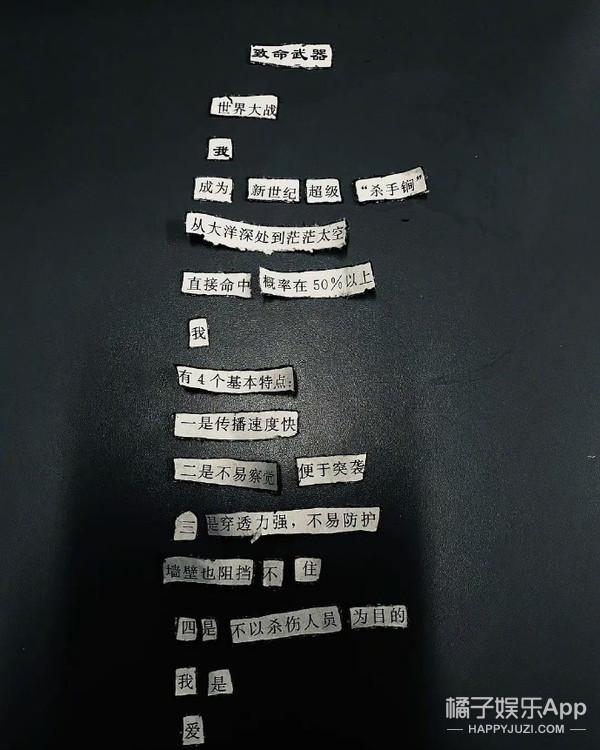 致命武器
世界大战
我
成为 新世纪 超级 “杀手锏”
从大洋深处到茫茫太空
直接命中 概率在50%以上
我
有4个基本特点:
一是传播速度快
二是不易察觉 便于突袭
三是穿透力强，不易防护
墙壁也阻挡不住
四是 不以杀伤人员 为目的
我是
爱
橘子娱乐App
HAPPYJUZI.COM